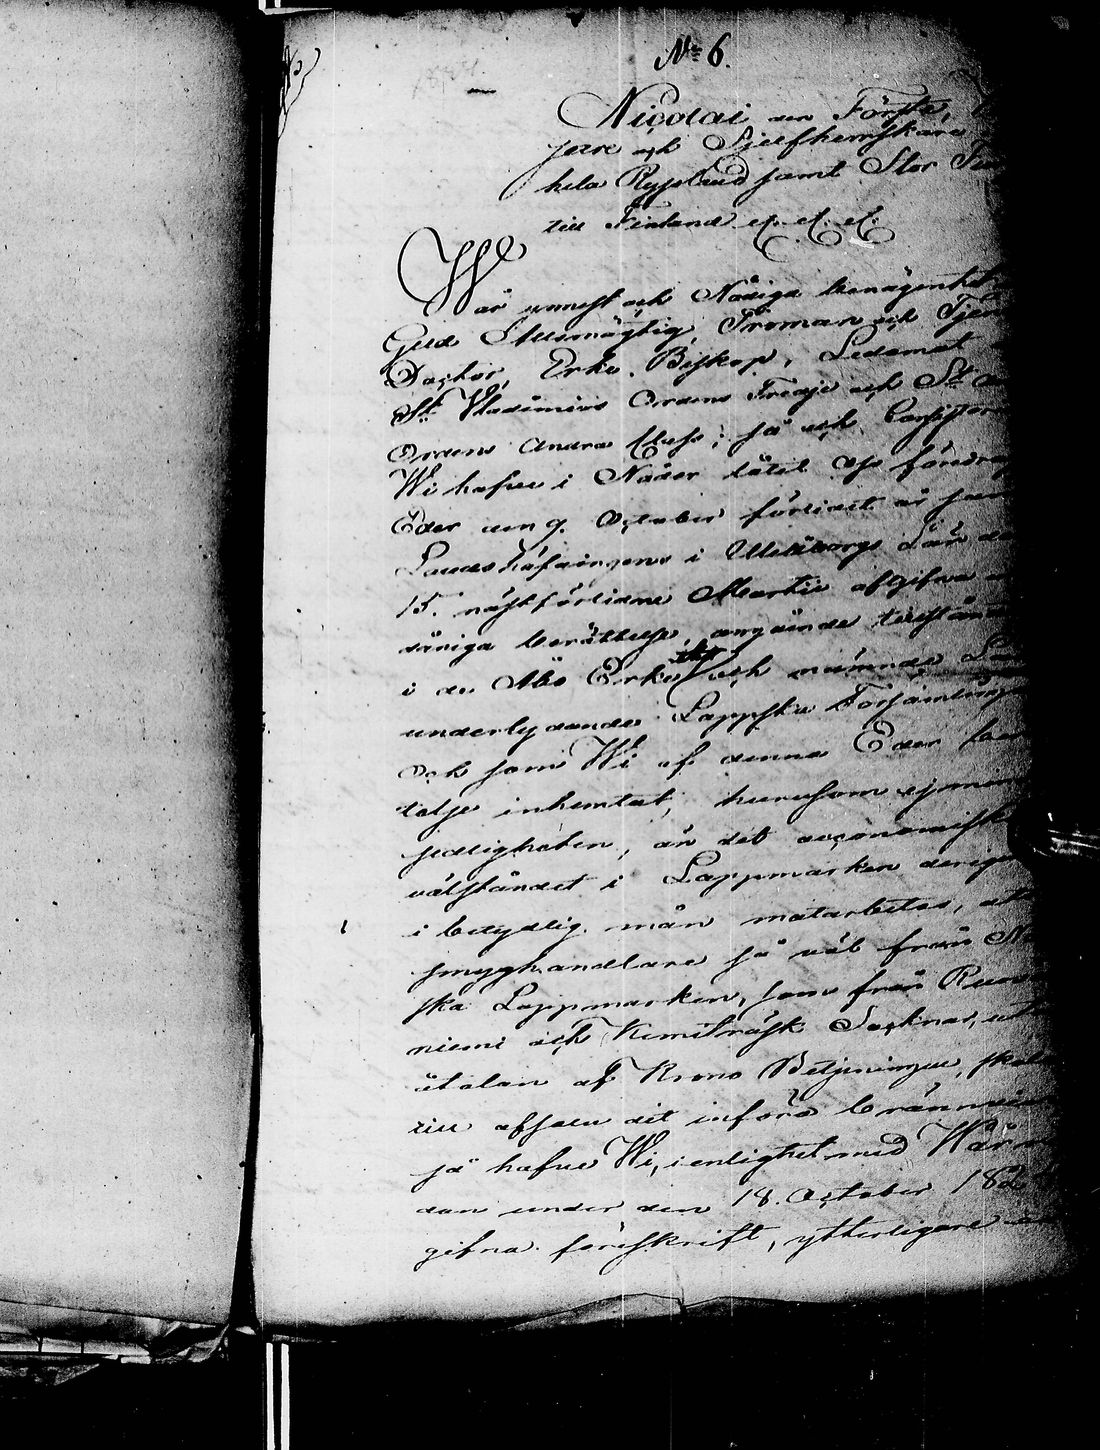 No 6.
Nicolai den Förste,
jsare och Sjelfherrskare
hela Ryssland samt Stor
till Finland &. &. &.
Wår ynnest och Nådiga benägenhet
Gud Allsmägtig, Troman och
Doctor, Erke-Biskop, Ledamot
St. Vladimirs Ordens Tredje och St.
Ordens Andra Class; så och
Wi hafve i Nåder låtit Oss
Eder den 9. October förledit år
Landshöfdingens i Uleåborgs Län
15. nästförledne Martii afgifna
dåniga berättelse, angående
i de Åbo Erke och nämnde
underlydande Lappska
Och som Wi af denna Eder
telse inhemtat, hurusom ej
sedligheten, än det oeconomiska
välståndet i Lappmarken
i betydlig mån motarbetas,
smyghandlare så väl från
ska Lappmarken, som från
niemi och Kemiträsk Socknar,
åtalan af Krono Betjeningen,
till afsalu dit införa
så hafve Wi, i enlighet med Wår
dan under den 18. October 182
gifna föreskrift, ytterligare